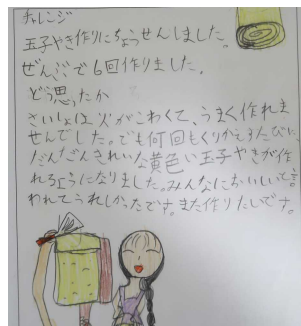 チャレンジ
玉子やき作りにちょうせんしました。
ぜんぶで6回作りました。
どう思ったか
さいしょは、火がこわくて、うまく作れま
せんでした。でも何回もくりかえすたびに
だんだんきれいな黄色い玉子やきが作
れるようになりました。みんなにおいしいと言
われてうれしかったです。また作りたいです。